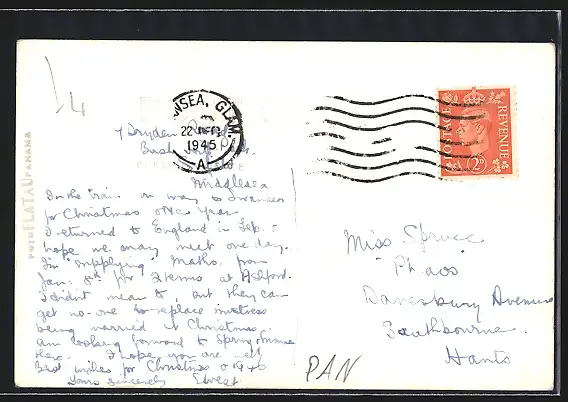 SWANSEA, GLAM
22 DE
1945
A
POSTAGE REVENUE
2D
FOTO FLATAU PANAMA
7 Dryden Road
Bush Hill Pk
Middlesex
In the train on way to Swansea
for Christmas & New Year.
I returned to England in Feb. -
hope we may meet one day.
I'm "supplying" Maths. from
Jan. 8th for 2 terms at Ashford.
I didn't mean to, but they can
get no-one to replace mistress
being married at Christmas.
am looking forward to Spring & Summer
there. I hope you are well
Best wishes for Christmas & 1946
Yours sincerely
Miss Spruce
"Pharos"
Danesbury Avenue
Southbourne.
Hants
PAN